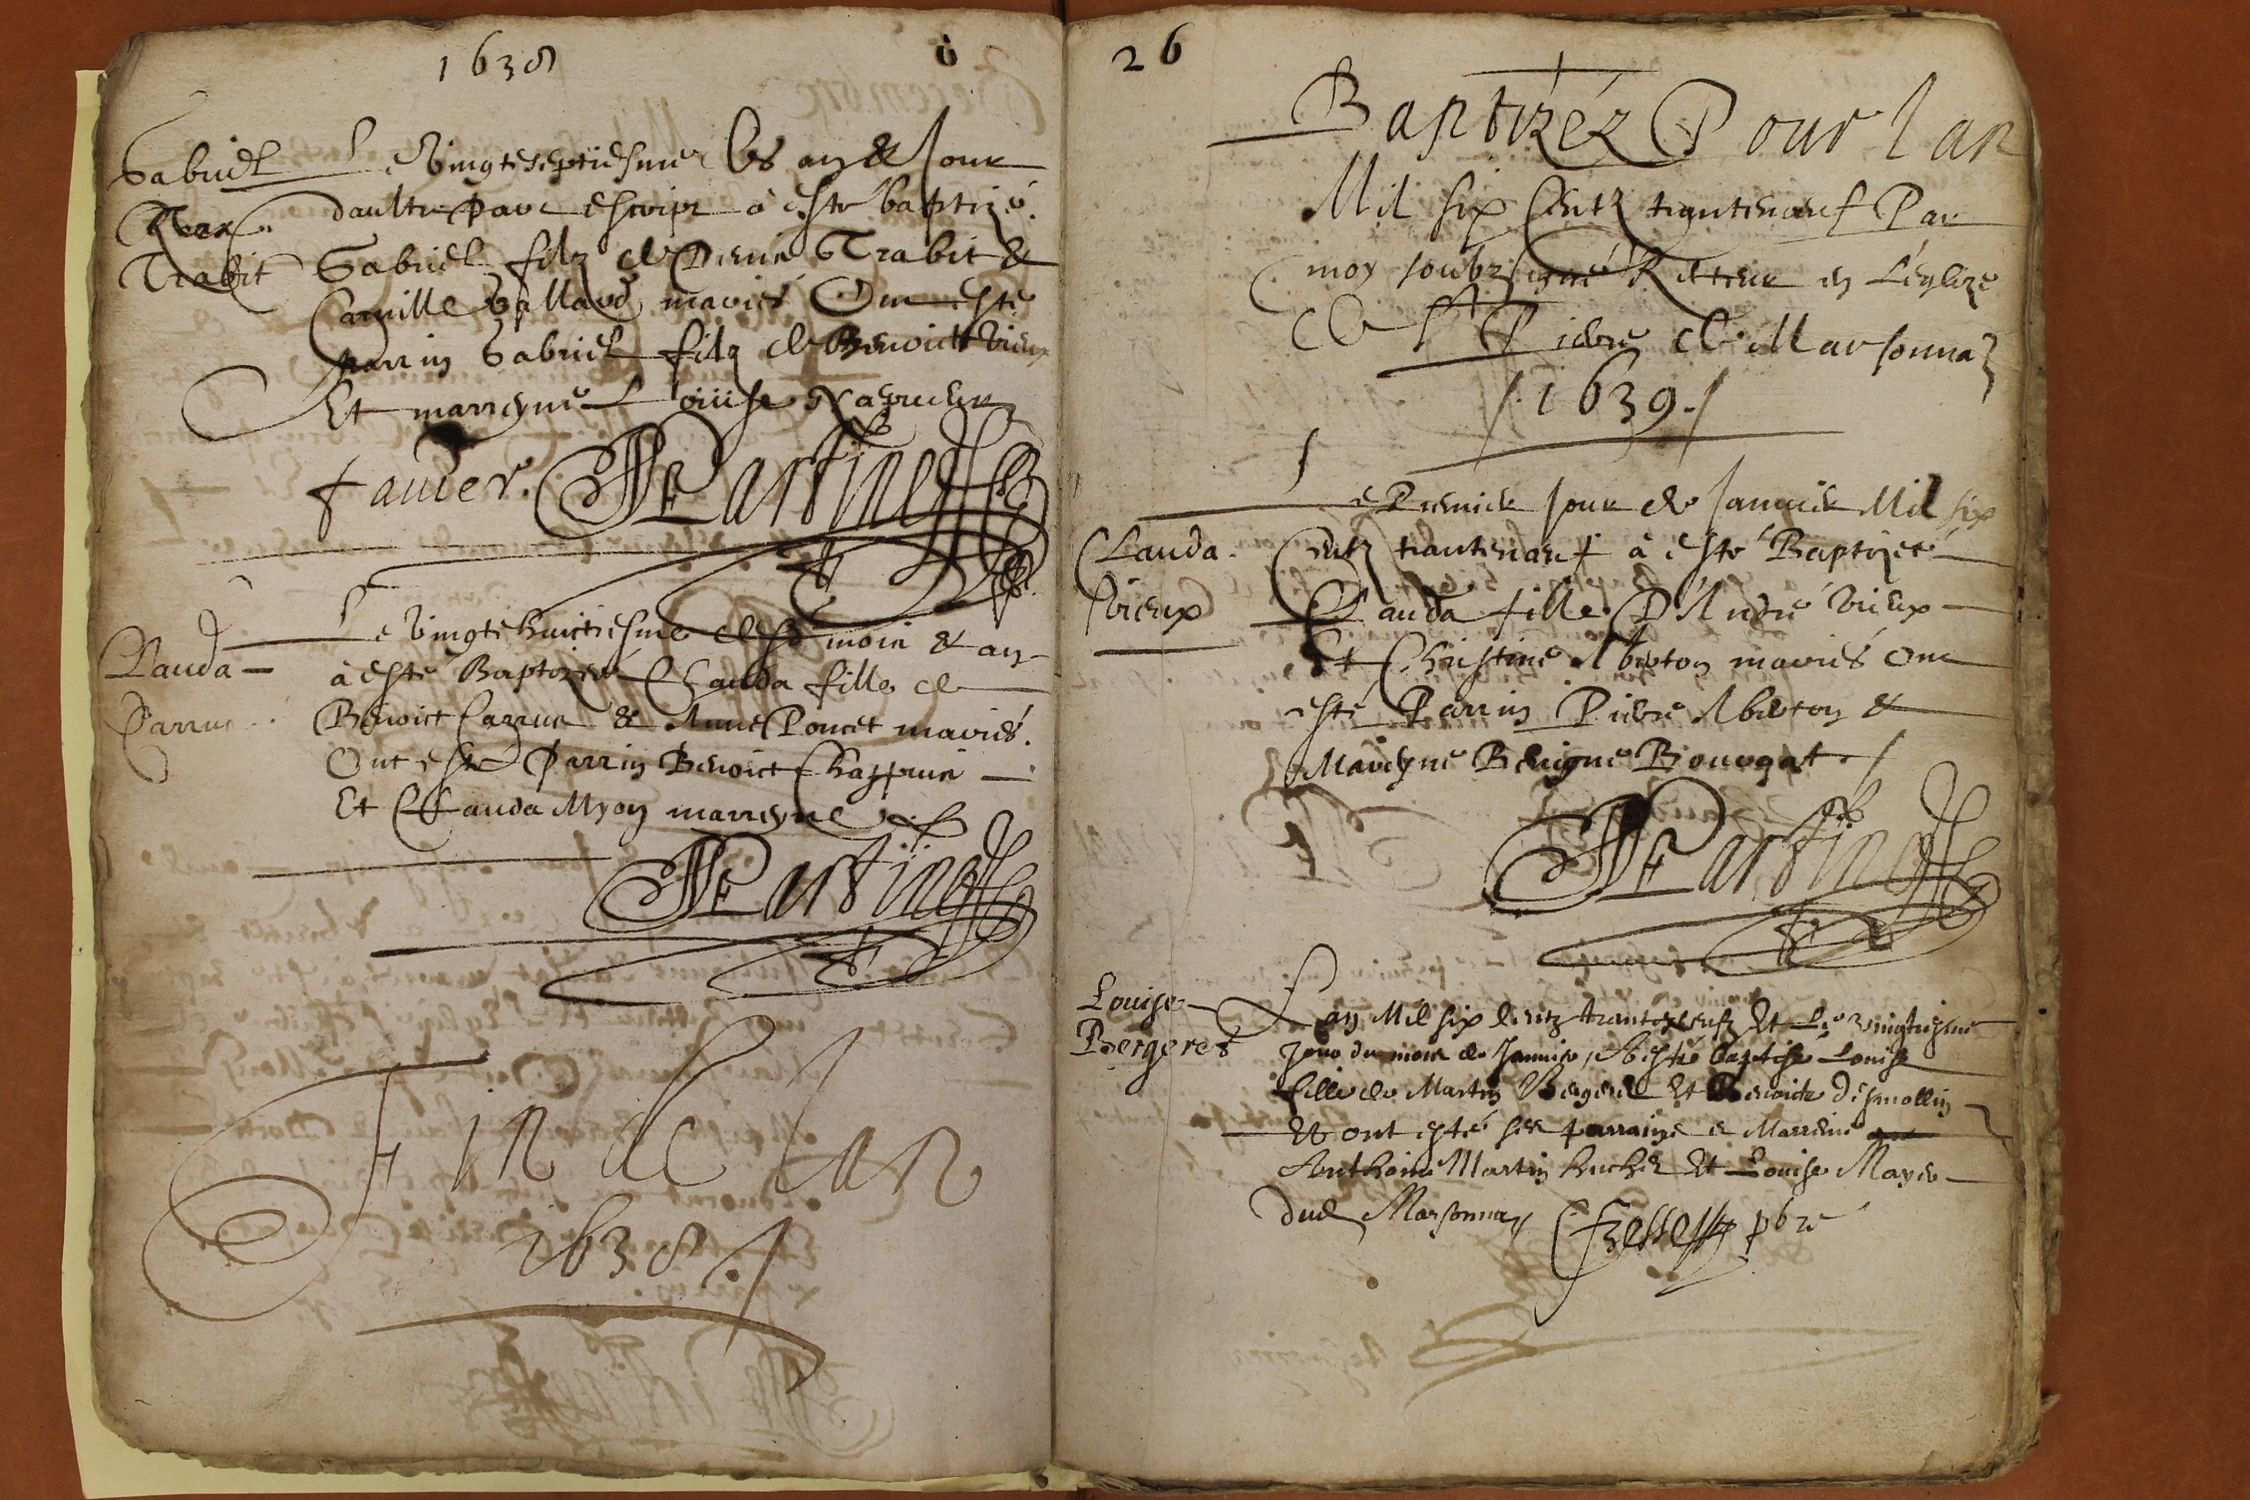 1638
Gabriel
Trabit
Le vingt septiesme les an & Jour
daultre part escript à esté baptizé.
Gabriel filz de Denis Trabit &
Camille Vallaud mariés Ont esté
parrin Gabriel filz de Benoict Vieux
Et marreyne Louise
favier. Martinet
Clauda
Carruc
Le vingt huictiesme desd mois & an
à esté Baptizée Clauda fille de
Benoict Carruc & Anne Poncet mariés.
Ont esté Parrin Benoict Chappuis
Et Clauda Myon marreyne
Martinet
Fin de lan
1638
26
Baptizéz Pour lan
Mil six Centz tranteneuf Par
moy soubzsigné Recteur en Léglize
de St Pierre de Marsonnaz
1639
Clauda
Vieux
Le Premier Jour de Janvier Mil six
Centz tranteneuf à esté Baptizeé
Clauda fille D'André Vieux
Et Christine Abeton mariés Ont
esté Parrin Pierre Abeton &
Mareyne Benigne Bouvgat
Martinet
Louise
Bergeret
Lan Mil six Centz trante neufz Et Le vingtiesme
Jour du mois de Janvier, A esté baptise Louise
fille de Martin Bergeret Et Benoicte desmollin
Et ont esté ses parrains e Marreine
Anthoine Martin huchet Et Louise Mayer
dud Marsonnaz pbre